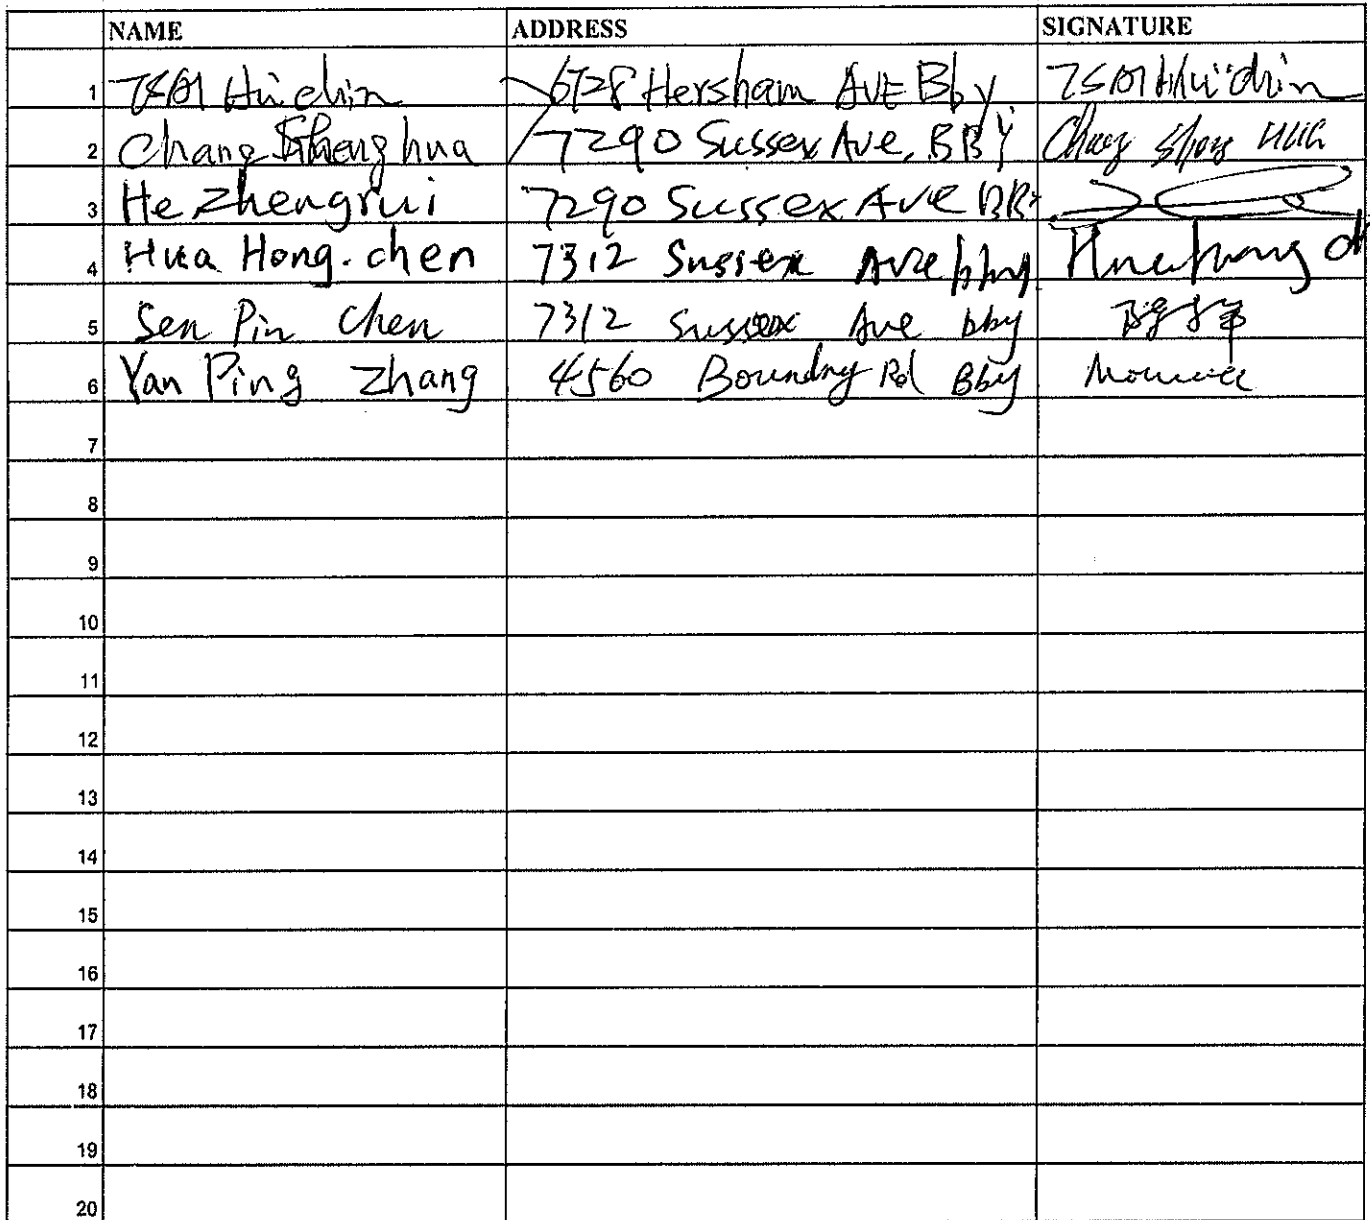 NAME ADDRESS SIGNATURE
1 Hui chin 6728 Hersham AVE Bby
2 Chang Shenghua 7290 Sussex Ave, BBY Chang
3 He Zhengrui 7290 Sussex Ave BB
4 Hua Hong. chen 7312 Sussex Ave bby
5 Sen Pin Chen 7312 Sussex Ave bby
6 Yan Ping Zhang 4560 Boundry Rd Bby
7
8
9
10
11
12
13
14
15
16
17
18
19
20